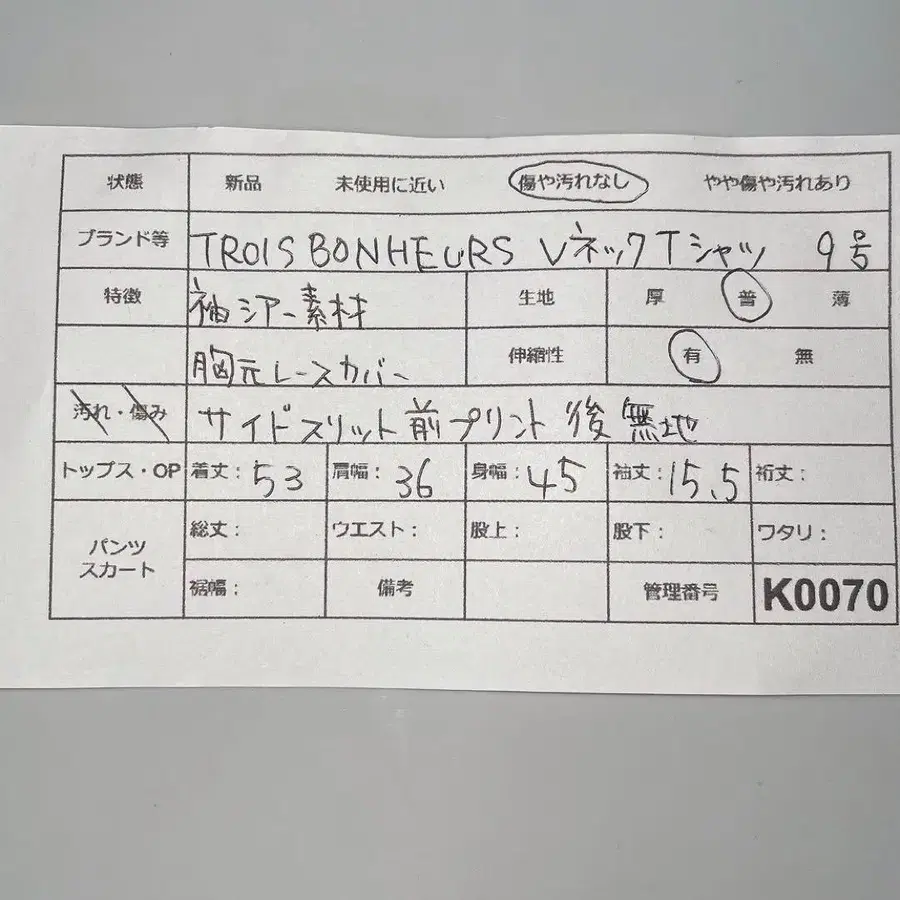 状態 新品 未使用に近い 傷や汚れなし やや傷や汚れあり
ブランド等 TROIS BONHEURS VネックTシャツ 9号
特徴 袖シアー素材 生地 厚 普 薄
胸元レースカバー 伸縮性 有 無
汚れ・傷み サイドスリット前プリント後無地
トップス・OP 着丈：53 肩幅：36 身幅：45 袖丈：15.5 裄丈：
パンツ スカート 総丈： ウエスト： 股上： 股下： ワタリ：
裾幅： 備考 管理番号 K0070